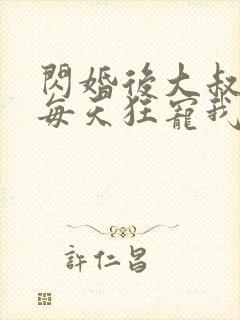 閃婚後大叔
每天狂寵我
許仁昌